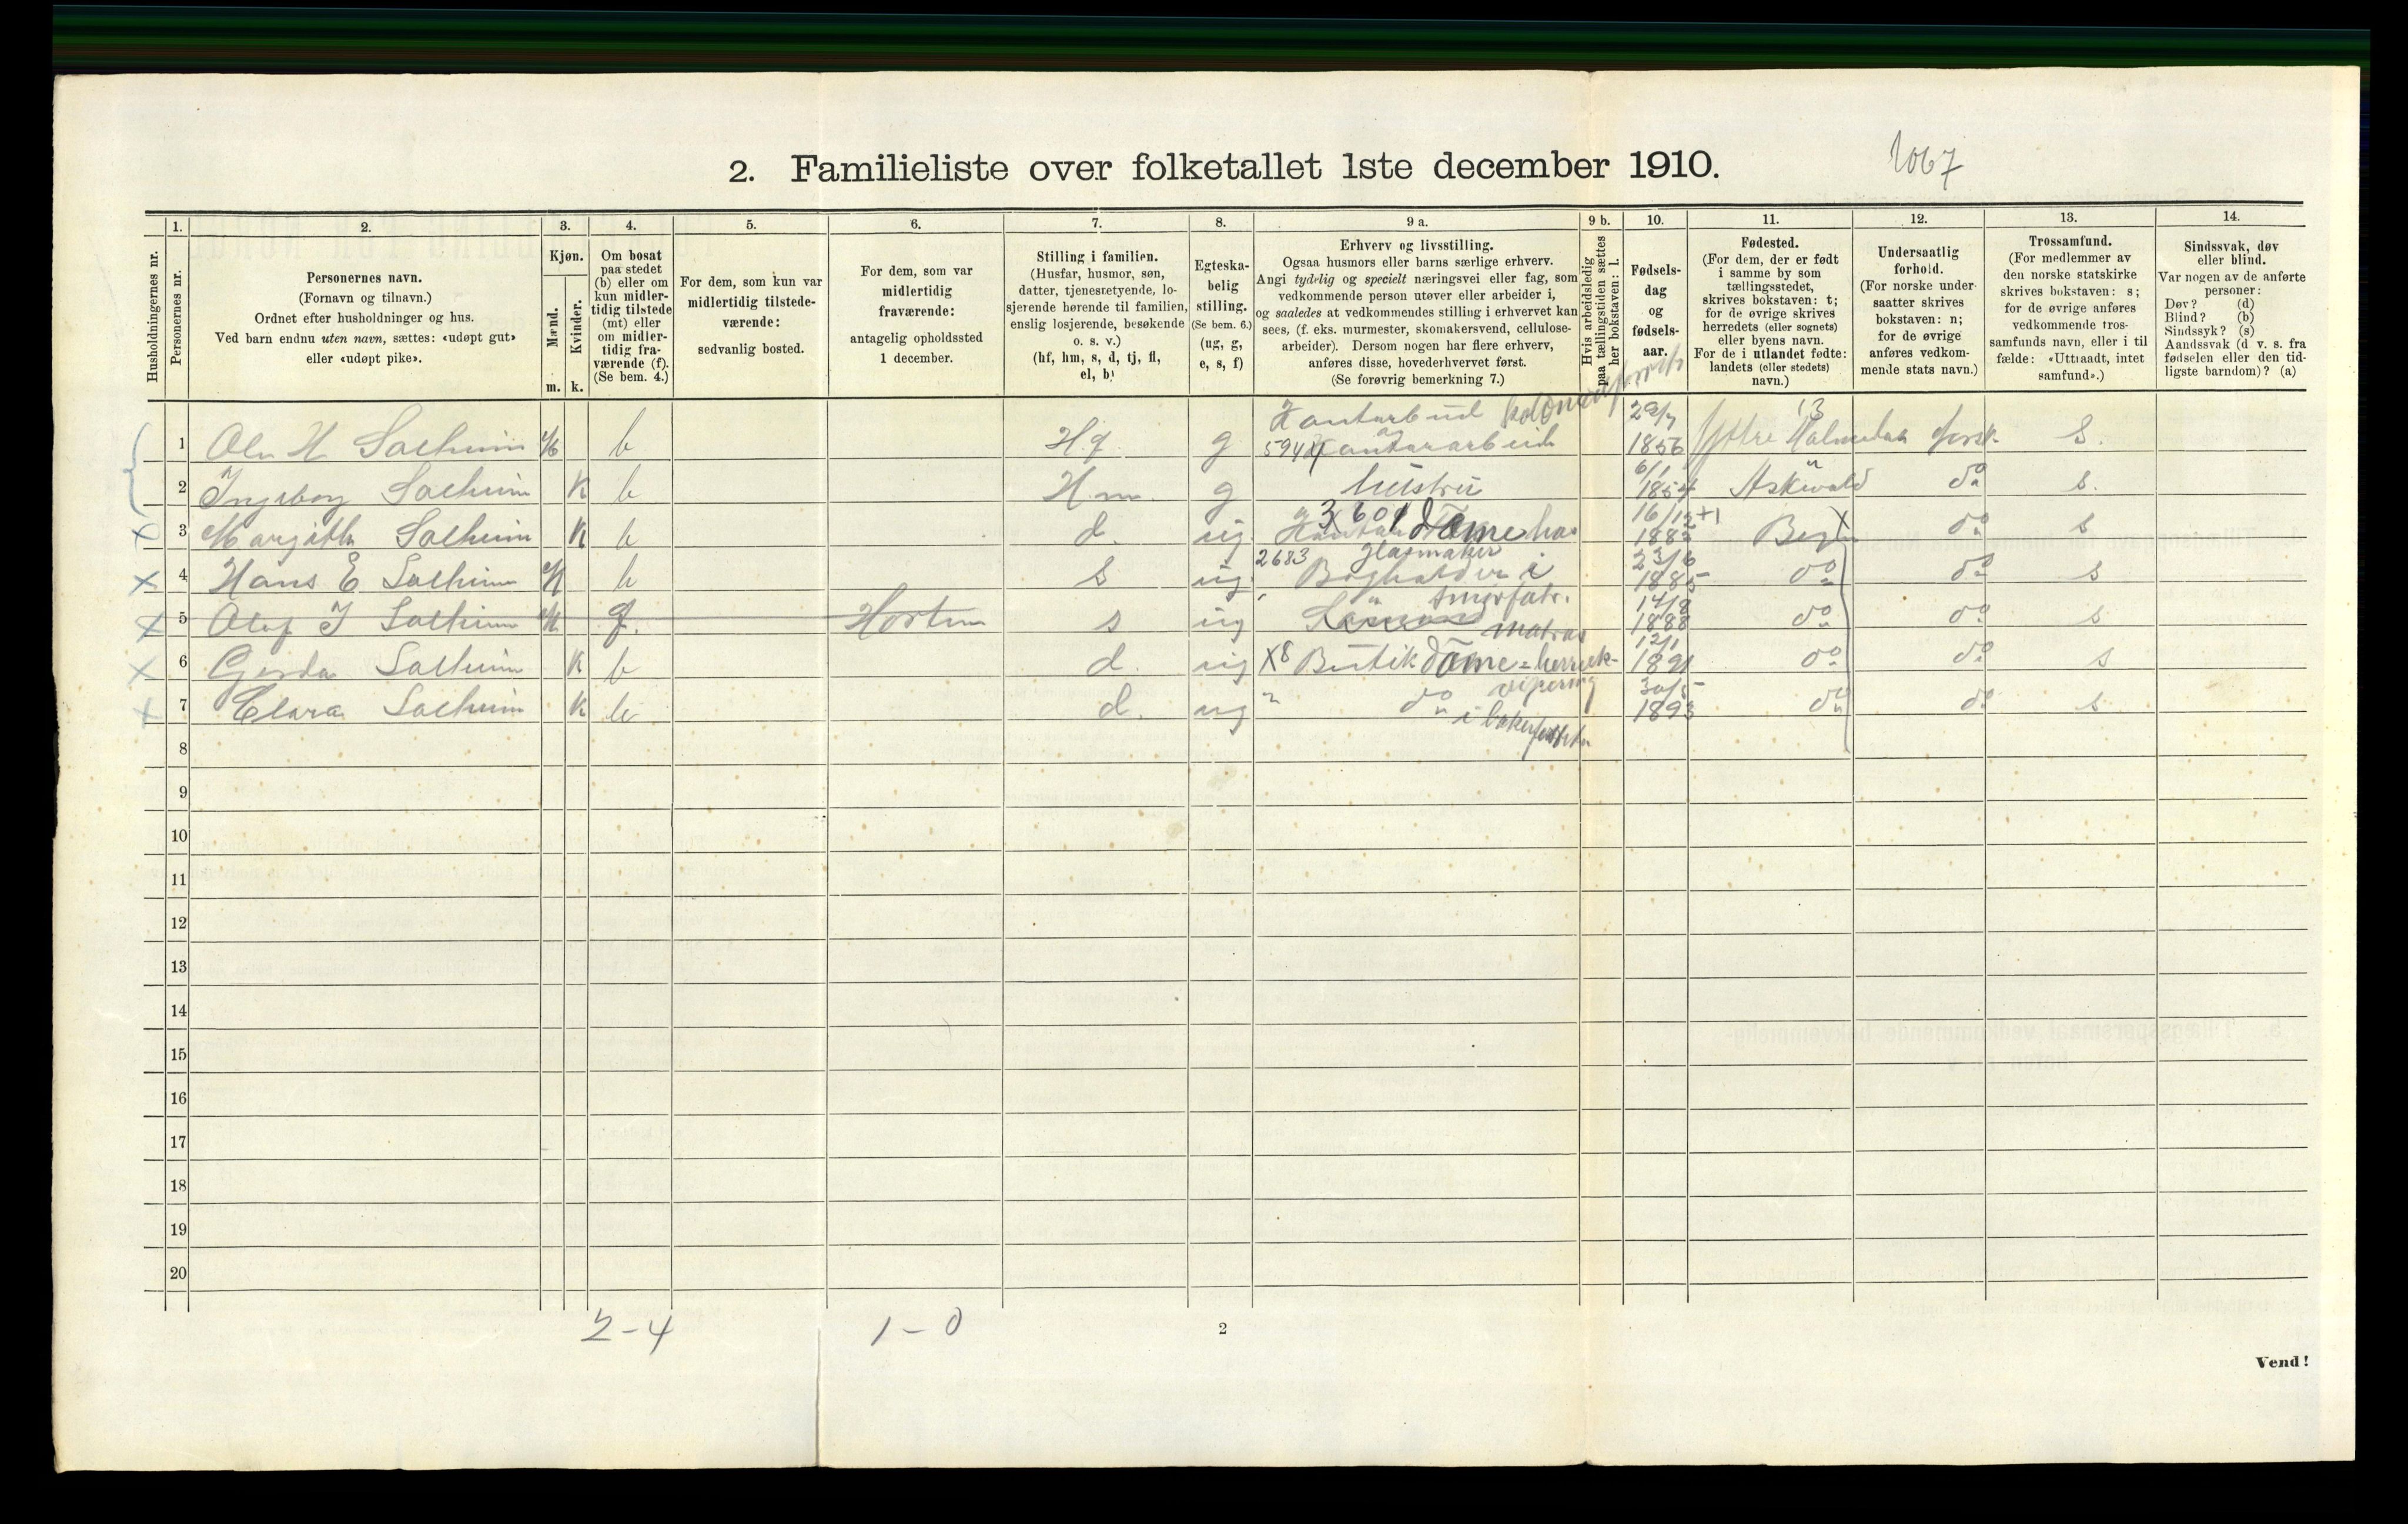 2. Familieliste over folketallet 1ste december 1910.
1067
Husholdningernes nr.
1. Personernes nr.
2. Personernes navn.
(Fornavn og tilnavn.)
Ordnet efter husholdninger og hus.
Ved barn endnu uten navn, sættes: «udøpt gut»
eller «udøpt pike».
3. Kjøn.
Mænd. m.
Kvinder. k.
4. Om bosat
paa stedet
(b) eller om
kun midler-
tidig tilstede
(mt) eller
om midler-
tidig fra-
værende (f).
(Se bem. 4.)
5. For dem, som kun var
midlertidig tilstede-
værende:
sedvanlig bosted.
6. For dem, som var
midlertidig
fraværende:
antagelig opholdssted
1 december.
7. Stilling i familien.
(Husfar, husmor, søn,
datter, tjenestetyende, lo-
sjerende hørende til familien,
enslig losjerende, besøkende
o. s. v.)
(hf, hm, s, d, tj, fl,
el, b)
8. Egteska-
belig
stilling.
(Se bem. 6.)
(ug, g,
e, s, f)
9 a. Erhverv og livsstilling.
Ogsaa husmors eller barns særlige erhverv.
Angi tydelig og specielt næringsvei eller fag, som
vedkommende person utøver eller arbeider i,
og saaledes at vedkommendes stilling i erhvervet kan
sees, (f. eks. murmester, skomakersvend, cellulose-
arbeider). Dersom nogen har flere erhverv,
anføres disse, hovederhvervet først.
(Se forøvrig bemerkning 7.)
9 b. Hvis arbeidsledig
paa tællingstiden sættes
her bokstaven: l.
10. Fødsels-
dag
og
fødsels-
aar.
11. Fødested.
(For dem, der er født
i samme by som
tællingsstedet,
skrives bokstaven: t;
for de øvrige skrives
herredets (eller sognets)
eller byens navn.
For de i utlandet fødte:
landets (eller stedets)
navn.)
12. Undersaatlig
forhold.
(For norske under-
saatter skrives
bokstaven: n;
for de øvrige
anføres vedkom-
mende stats navn.)
13. Trossamfund.
(For medlemmer av
den norske statskirke
skrives bokstaven: s;
for de øvrige anføres
vedkommende tros-
samfunds navn, eller i til
fælde: «Uttraadt, intet
samfund».)
14. Sindssvak, døv
eller blind.
Var nogen av de anførte
personer:
Døv? (d)
Blind? (b)
Sindssyk? (s)
Aandssvak (d. v. s. fra
fødselen eller den tid-
ligste barndom)? (a)
1 Ole H Solheim M b Hf g 5944 29/7 1856 Ytre Holmedal norsk S.
2 Ingeborg Solheim K b Hm g hustru 6/1 1854 Askevold do s.
3 Margith Solheim K b d. ug 3601 Dame hos glasmaker 16/12 1882 Bergen do s
4 Hans E Solheim M b s ug. 2683 Bogholder i smørfabr. 23/6 1885 do do s
5 Olaf J Solheim M f. Horten s ug matros 14/8 1888 do do s
6 Gerda Solheim K b d. ug X8 Butikdame = herreek-
vipering 12/1 1891 do do s
7 Clara Solheim K b d. ug " do i 30/5 1893 do do s
8
9
10
11
12
13
14
15
16
17
18
19
20
2-4 1-0
2
Vend!